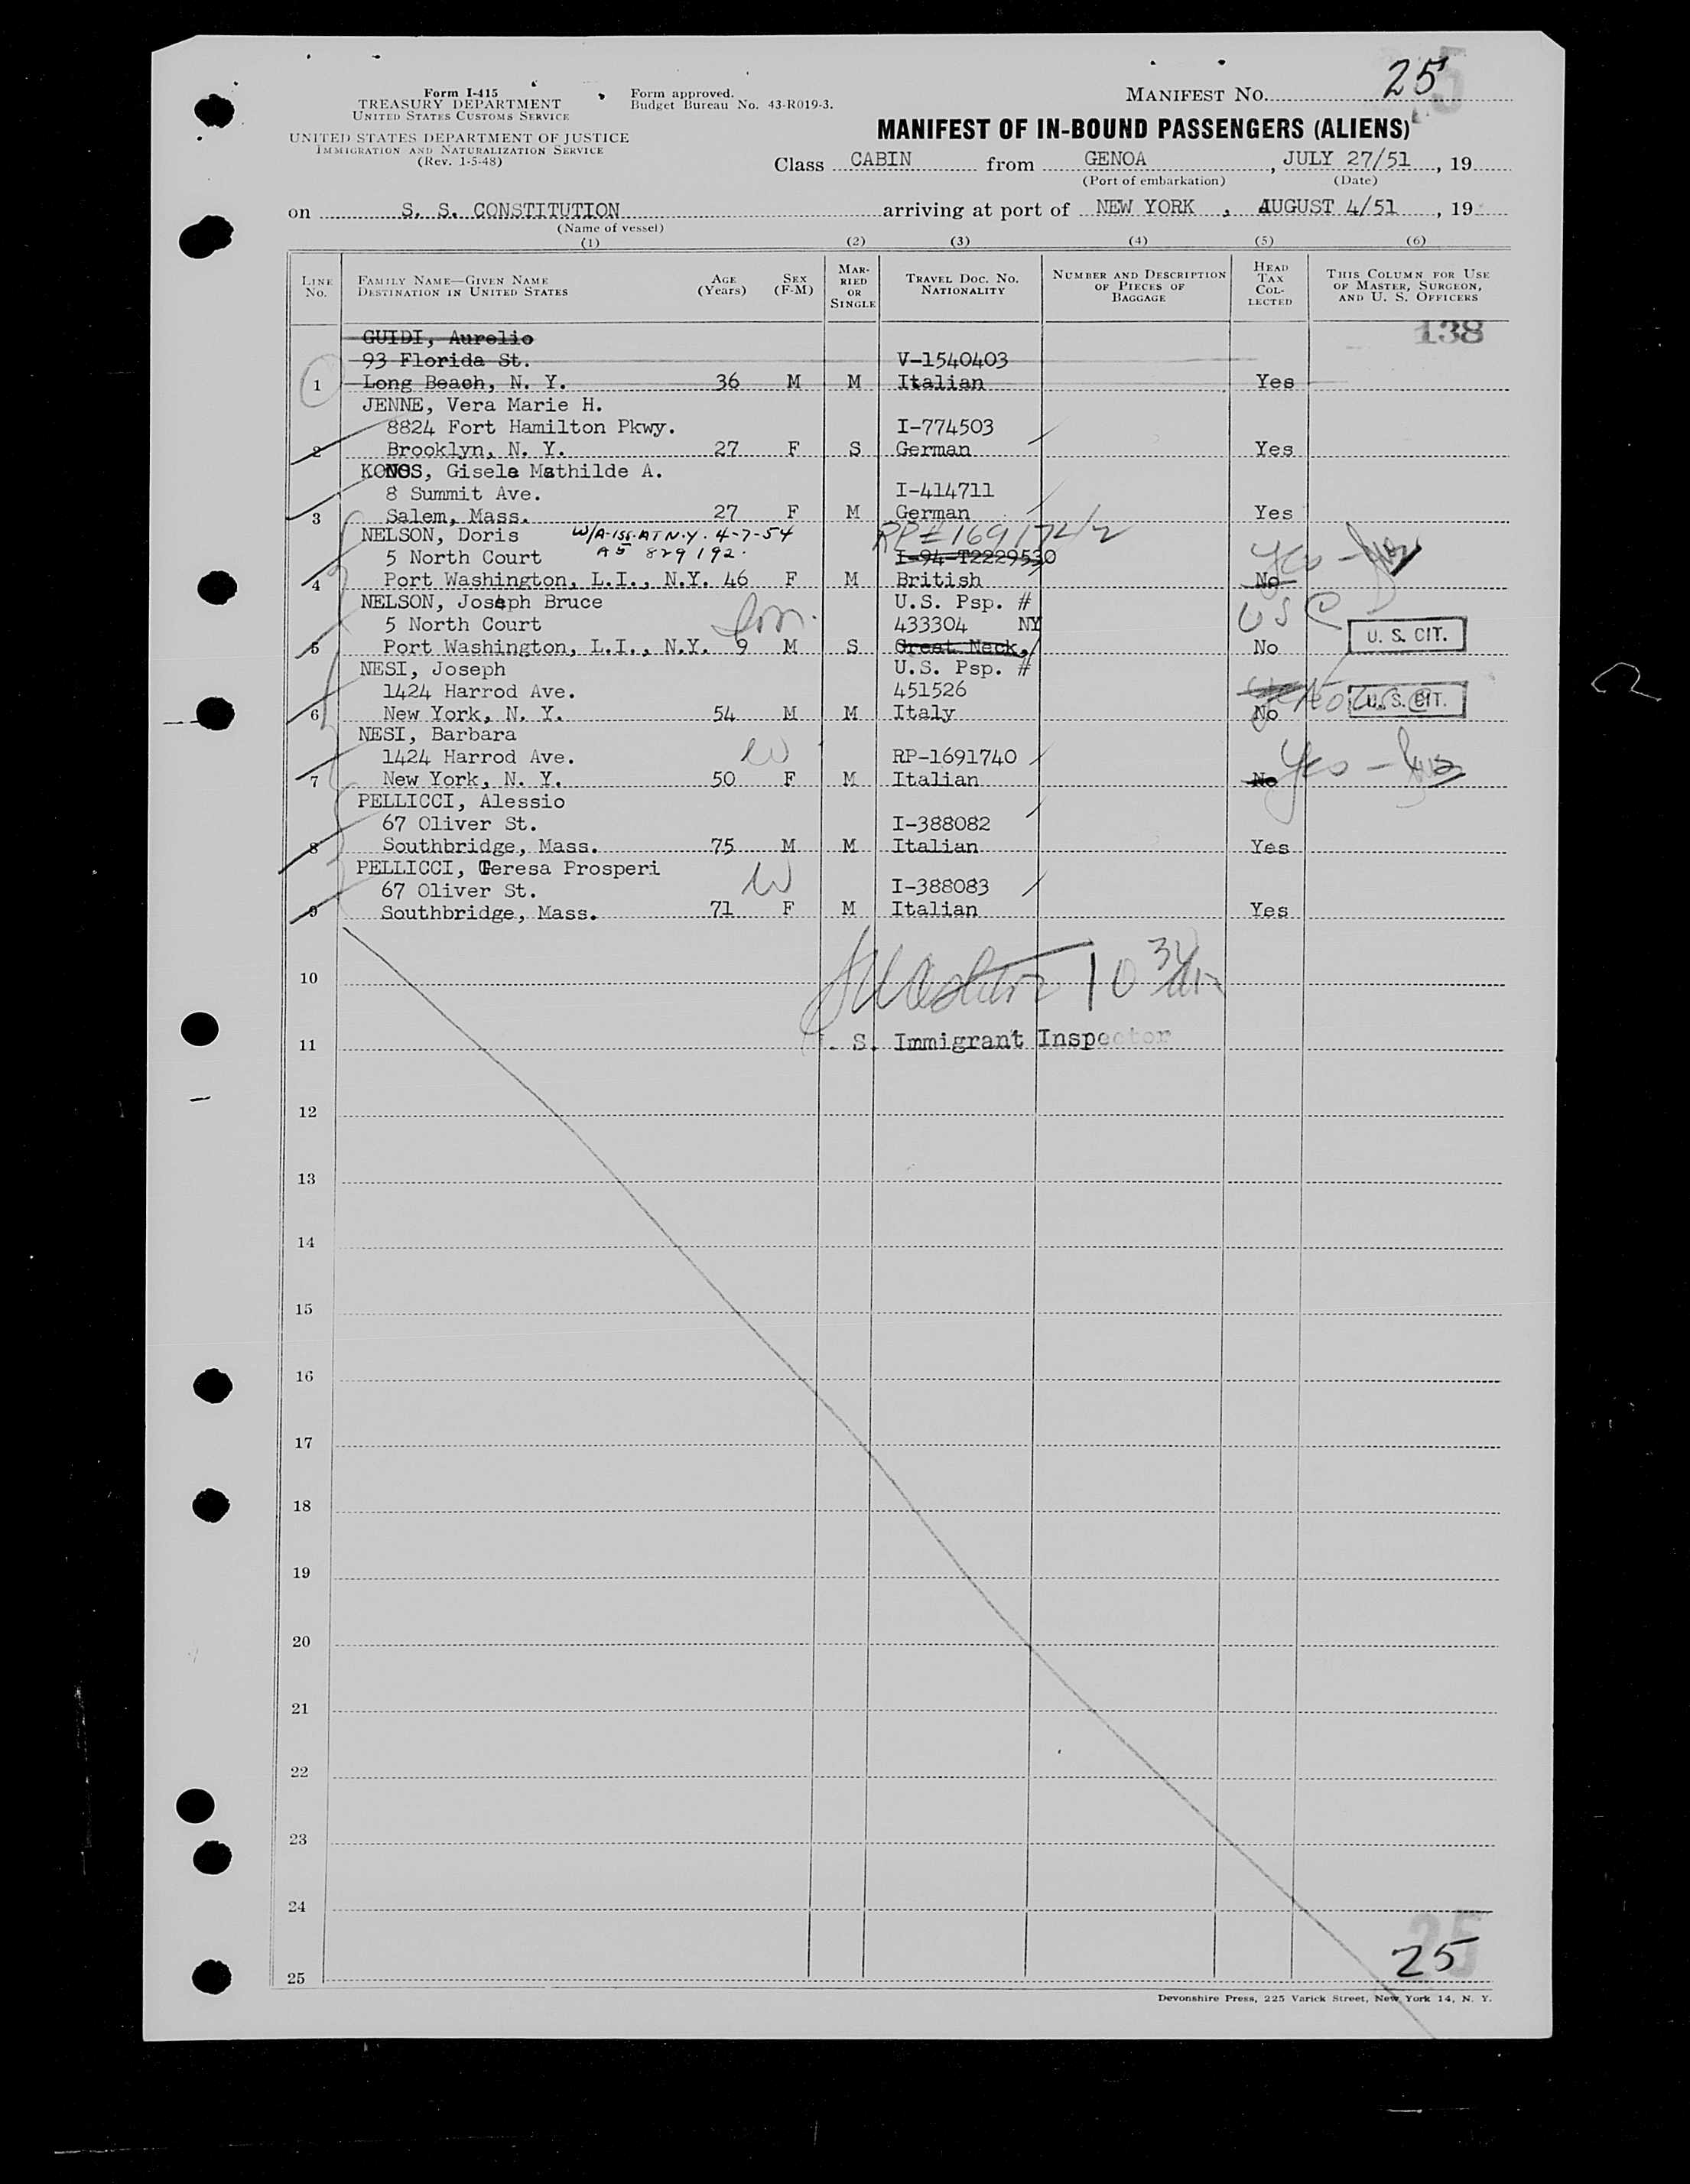 25
Form I-415
TREASURY DEPARTMENT
UNITED STATES CUSTOMS SERVICE
UNITED STATES DEPARTMENT OF JUSTICE
IMMIGRATION AND NATURALIZATION SERVICE
(Rev. 1-5-48)
Form approved.
Budget Bureau No. 43-R019-3.
MANIFEST NO. 25
MANIFEST OF IN-BOUND PASSENGERS (ALIENS)
Class CABIN from GENOA, JULY 27/51, 19
(Port of embarkation) (Date)
on S. S. CONSTITUTION arriving at port of NEW YORK, AUGUST 4/51, 19
(Name of vessel)
(1) (2) (3) (4) (5) (6)
LINE NO. FAMILY NAME—GIVEN NAME DESTINATION IN UNITED STATES AGE (Years) SEX (F-M) MARRIED OR SINGLE TRAVEL DOC. NO. NATIONALITY NUMBER AND DESCRIPTION OF PIECES OF BAGGAGE HEAD TAX COLLECTED THIS COLUMN FOR USE OF MASTER, SURGEON, AND U. S. OFFICERS
138
GUIDI, Aurelio
93 Florida St. V-1540403
1 Long Beach, N. Y. 36 M M Italian Yes
JENNE, Vera Marie H.
8824 Fort Hamilton Pkwy. I-774503
2 Brooklyn, N. Y. 27 F S German Yes
KONOS, Gisela Mathilde A.
8 Summit Ave. I-414711
3 Salem, Mass. 27 F M German Yes
NELSON, Doris W/A-155-AT N.Y. 4-7-54
5 North Court A5 829192. I-94-T2229530
4 Port Washington, L.I., N.Y. 46 F M British No Yes
NELSON, Joseph Bruce U.S. Psp. #
5 North Court 433304 NY U S C
5 Port Washington, L.I., N.Y. 9 M S Great Neck, No U. S. CIT.
NESI, Joseph U.S. Psp. #
1424 Harrod Ave. 451526
6 New York, N. Y. 54 M M Italy No U. S. CIT.
NESI, Barbara
1424 Harrod Ave. W RP-1691740
7 New York, N. Y. 50 F M Italian No Yes
PELLICCI, Alessio
67 Oliver St. I-388082
8 Southbridge, Mass. 75 M M Italian Yes
PELLICCI, Teresa Prosperi
67 Oliver St. W I-388083
9 Southbridge, Mass. 71 F M Italian Yes
10
11 S. Immigrant Inspector
12
13
14
15
16
17
18
19
20
21
22
23
24
25
25
25
Devonshire Press, 225 Varick Street, New York 14, N. Y.